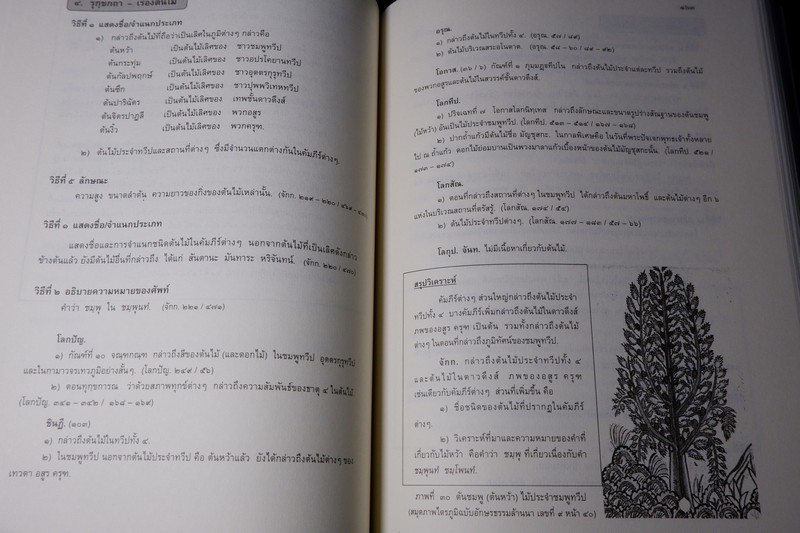 ๔. รุกขกถา – เรื่องต้นไม้
วิธีที่ ๑ แสดงชื่อ/จำแนกประเภท
๑) กล่าวถึงต้นไม้ที่ถือว่าเป็นเลิศในภูมิต่างๆ กล่าวคือ
ต้นหว้า เป็นต้นไม้เลิศของ ชาวชมพูทวีป
ต้นกระทุ่ม เป็นต้นไม้เลิศของ ชาวอปรโคยานทวีป
ต้นกัลปพฤกษ์ เป็นต้นไม้เลิศของ ชาวอุตตรกุรุทวีป
ต้นซึก เป็นต้นไม้เลิศของ ชาวปุพพวิเทหทวีป
ต้นปาริฉัตร เป็นต้นไม้เลิศของ เทพชั้นดาวดึงส์
ต้นจิตรปาฏลี เป็นต้นไม้เลิศของ พวกอสูร
ต้นงิ้ว เป็นต้นไม้เลิศของ พวกครุฑ.
๒) ต้นไม้ประจำทวีปและสถานที่ต่างๆ ซึ่งมีจำนวนแตกต่างกันในคัมภีร์ต่างๆ.
วิธีที่ ๕ ลักษณะ
ความสูง ขนาดลำต้น ความยาวของกิ่งของต้นไม้เหล่านั้น. (จักก. ๒๑๙ – ๒๒๐ /
วิธีที่ ๑ แสดงชื่อ/จำแนกประเภท
แสดงชื่อและการจำแนกชนิดต้นไม้ในคัมภีร์ต่างๆ นอกจากต้นไม้ที่เป็นเลิศดังกล่าว
ข้างต้นแล้ว ยังมีต้นไม้อื่นที่กล่าวถึง ได้แก่ สันตานะ มันทาระ หริจันทน์. (จักก. ๒๒๐ / ๔๗๐)
วิธีที่ ๒ อธิบายความหมายของศัพท์
คำว่า ชมฺพุ ใน ชมฺพุนท์. (จักก. ๒๒๑ / ๔๗๑)
โลกปัญ.
๑) กัณฑ์ที่ ๑๐ จณฺฑกณฺฑ กล่าวถึงสีของต้นไม้ (และดอกไม้) ในชมพูทวีป อุตตรกุรุทวีป
และในกามาวจรเทวภูมิอย่างสั้นๆ. (โลกปัญ. ๒๔๙ / ๕๖)
๒) ตอนทุกขการณ ว่าด้วยสภาพทุกข์ต่างๆ กล่าวถึงความสัมพันธ์ของธาตุ ๔ ในต้นไม้
(โลกปัญ. ๓๔๑ – ๓๔๒ / ๑๖๘ – ๑๖๙)
ชินฎี. (๑๐๓)
๑) กล่าวถึงต้นไม้ในทวีปทั้ง ๔.
๒) ในชมพูทวีป นอกจากต้นไม้ประจำทวีป คือ ต้นหว้าแล้ว ยังได้กล่าวถึงต้นไม้ต่างๆ ของ
เทวดา อสูร ครุฑ.
อรุณ.
๑) กล่าวถึงต้นไม้ในทวีปทั้ง ๔. (อรุณ. ๕๗ / ๘๙)
๒) ต้นไม้บริเวณสระอโนดาต. (อรุณ. ๕๘ – ๖๐ / ๘๙ – ๙๒)
โอภาส. (๓๖ / ๖) กัณฑ์ที่ ๑ กล่าวถึงต้นไม้ประจำแต่ละทวีป รวมถึงต้นไม้
ของพวกอสูรและต้นไม้ในสวรรค์ชั้นดาวดึงส์.
โลกทีป.
๑) ปริจเฉทที่ ๗ โอกาสโลกนิทเทส กล่าวถึงลักษณะและขนาดรูปร่างสัณฐานของต้นชมพู
(ไม้หว้า) อันเป็นไม้ประจำชมพูทวีป. (โลกทีป. ๕๑๓ – ๕๑๔ / ๑๖๗ – ๑๖๘)
๒) ปากถ้ำแก้วมีต้นไม้ชื่อ มัญชุสกะ. ในกาลพิเศษคือ ในวันที่พระปัจเจกพุทธเจ้าทั้งหลาย
ไป ณ ถ้ำแก้ว ดอกไม้ย่อมบานเป็นพวงมาลาแก้วเบื้องหน้าของต้นไม้มัญชุสกะนั้น. (โลกทีป. ๕๒๑ /
๑๗๓ – ๑๗๔)
โลกสัณ.
๑) ตอนที่กล่าวถึงสถานที่ต่างๆ ในชมพูทวีป ได้กล่าวถึงต้นมหาโพธิ์ และต้นไม้ต่างๆ อีก ๖
แห่งในบริเวณสถานที่ตรัสรู้. (โลกสัณ. ๑๗๔ / ๕๔)
๒) ต้นไม้ประจำทวีปต่างๆ. (โลกสัณ. ๑๗๗ – ๑๘๓ / ๕๗ – ๖๖)
โลกุป. จันท. ไม่มีเนื้อหาเกี่ยวกับต้นไม้.
สรุปวิเคราะห์
คัมภีร์ต่างๆ ส่วนใหญ่กล่าวถึงต้นไม้ประจำ
ทวีปทั้ง ๔ บางคัมภีร์เพิ่มกล่าวถึงต้นไม้ในดาวดึงส์
ภพของอสูร ครุฑ เป็นต้น รวมทั้งกล่าวถึงต้นไม้
ต่างๆ ในตอนที่กล่าวถึงภูมิทัศน์ของชมพูทวีป.
จักก. กล่าวถึงต้นไม้ประจำทวีปทั้ง ๔
และต้นไม้ในดาวดึงส์ ภพของอสูร ครุฑ
เช่นเดียวกับคัมภีร์ต่างๆ ส่วนที่เพิ่มขึ้น คือ
๑) ชื่อชนิดของต้นไม้ที่ปรากฏในคัมภีร์
ต่างๆ.
๒) วิเคราะห์ที่มาและความหมายของคำที่
เกี่ยวกับไม้หว้า คือคำว่า ชมฺพุ ที่เกี่ยวเนื่องกับคำ
ชมฺพุนท์ ชมฺโพนท์.
ภาพที่ ๓๐ ต้นชมพู (ต้นหว้า) ไม้ประจำชมพูทวีป
(สมุดภาพไตรภูมิฉบับอักษรธรรมล้านนา เลขที่ ๙ หน้า ๔๐)